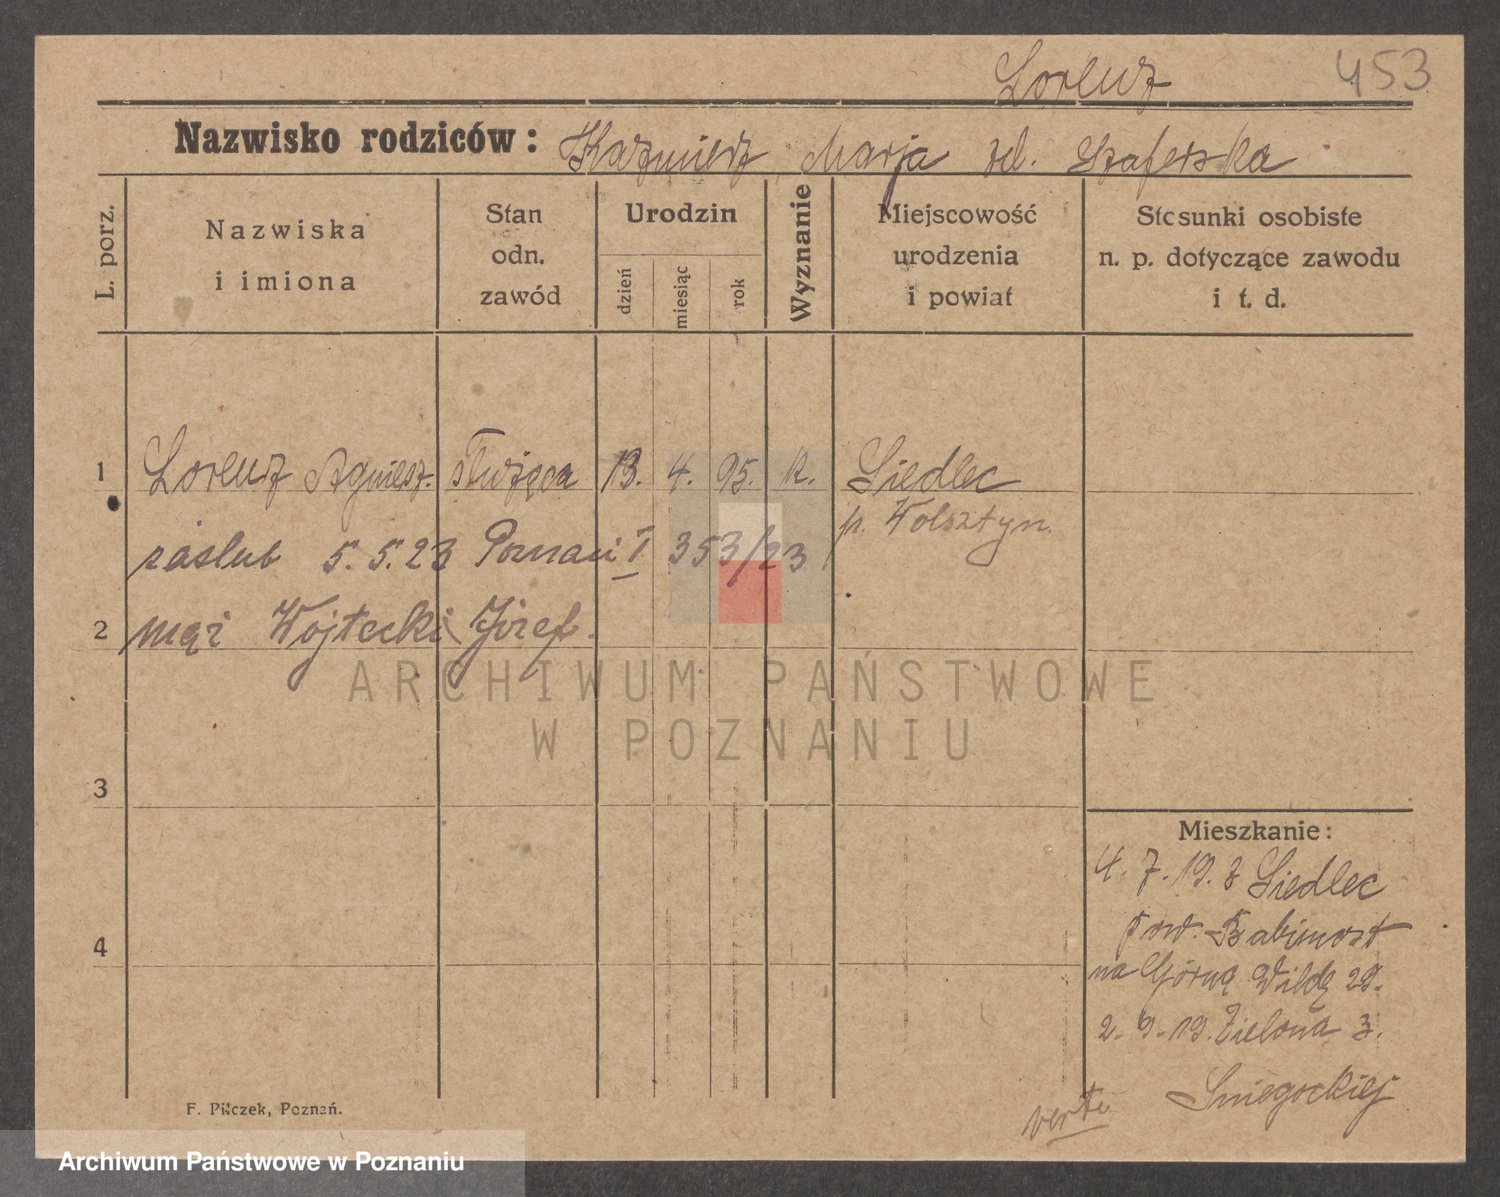 Lorenz 453
Nazwisko rodziców: Kaźmierz, Marja zd. Szaferska
L. porz.
Nazwiska
i imiona
Stan
odn.
zawód
Urodzin
dzień
miesiąc
rok
Wyznanie
Miejscowość
urodzenia
i powiat
Stosunki osobiste
n. p. dotyczące zawodu
i t. d.
1 Lorenz Agniesz. służąca 13. 4. 95. k. Siedlec
p. Wolsztyn.
zaślub 5.5.23 Poznań I 353/23
2 mąż Wojtecki Józef.
3
4
Mieszkanie:
4. 7. 19. z Siedlec
pow. Babimost
na Górną Wildę 29.
2. 9. 19. Zielona 3.
Śniegockiej
verte
F. Pilczek, Poznań.
ARCHIWUM PAŃSTWOWE
W POZNANIU
Archiwum Państwowe w Poznaniu